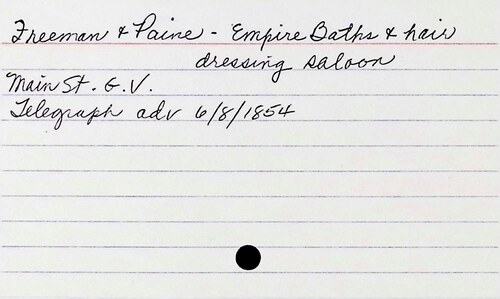 Freeman & Paine - Empire Baths & hair
dressing saloon
Main St. G.V.
Telegraph adv 6/8/1854